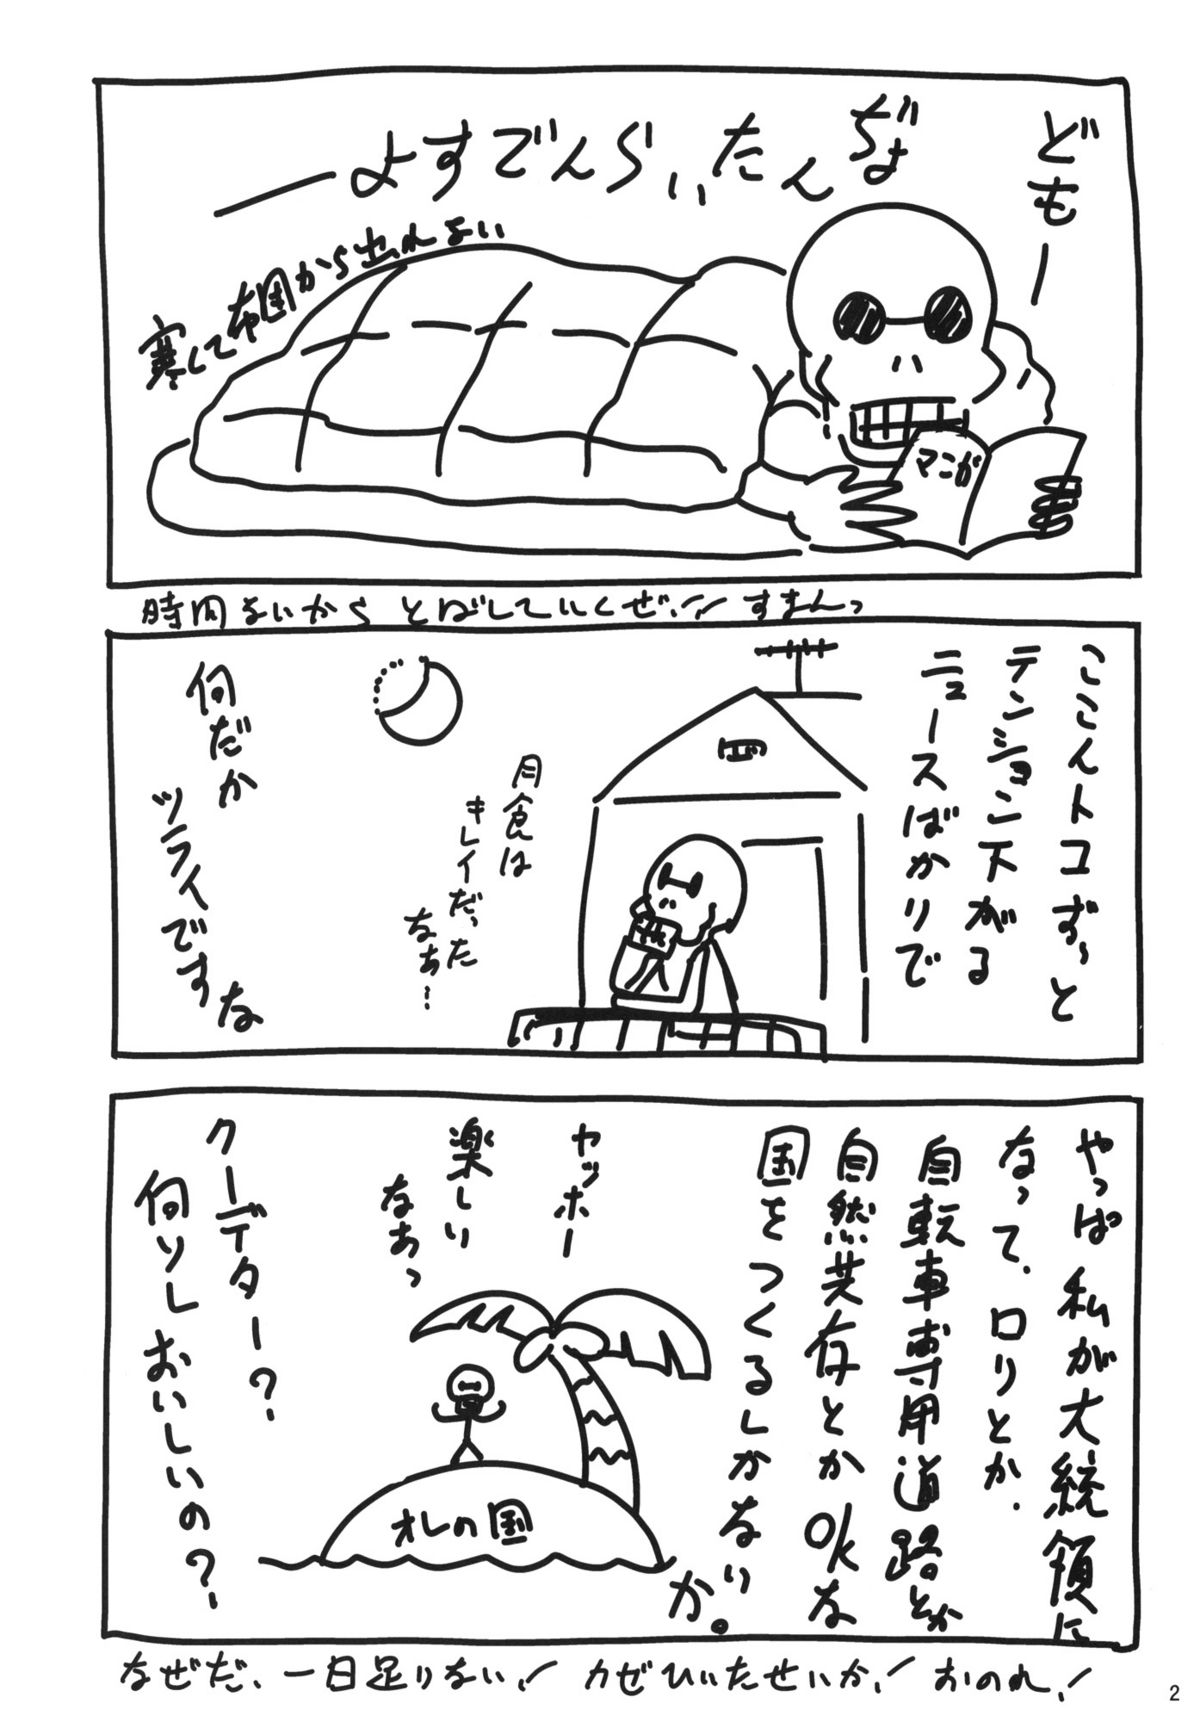 どもー
ぢょ
たんいらんですよー
寒くて布団から出れない
マンガ
時間ないから とばしていくぜ!! すまんっ
ここんトコずーっと
テンション下がる
ニュースばかりで
月食は
キレイだった
なぁ…
何だか
ツライです
な
やっぱ私が大統領に
なって、ロリとか、
自転車専用道路とか
自然共存とかOKな
国をつくるしかない
か。
ヤッホー
楽しい
なあっ
オレの国
クーデター?
何ソレおいしいの?
なぜだ、一日足りない! カゼひいたせいか! おのれ!
2